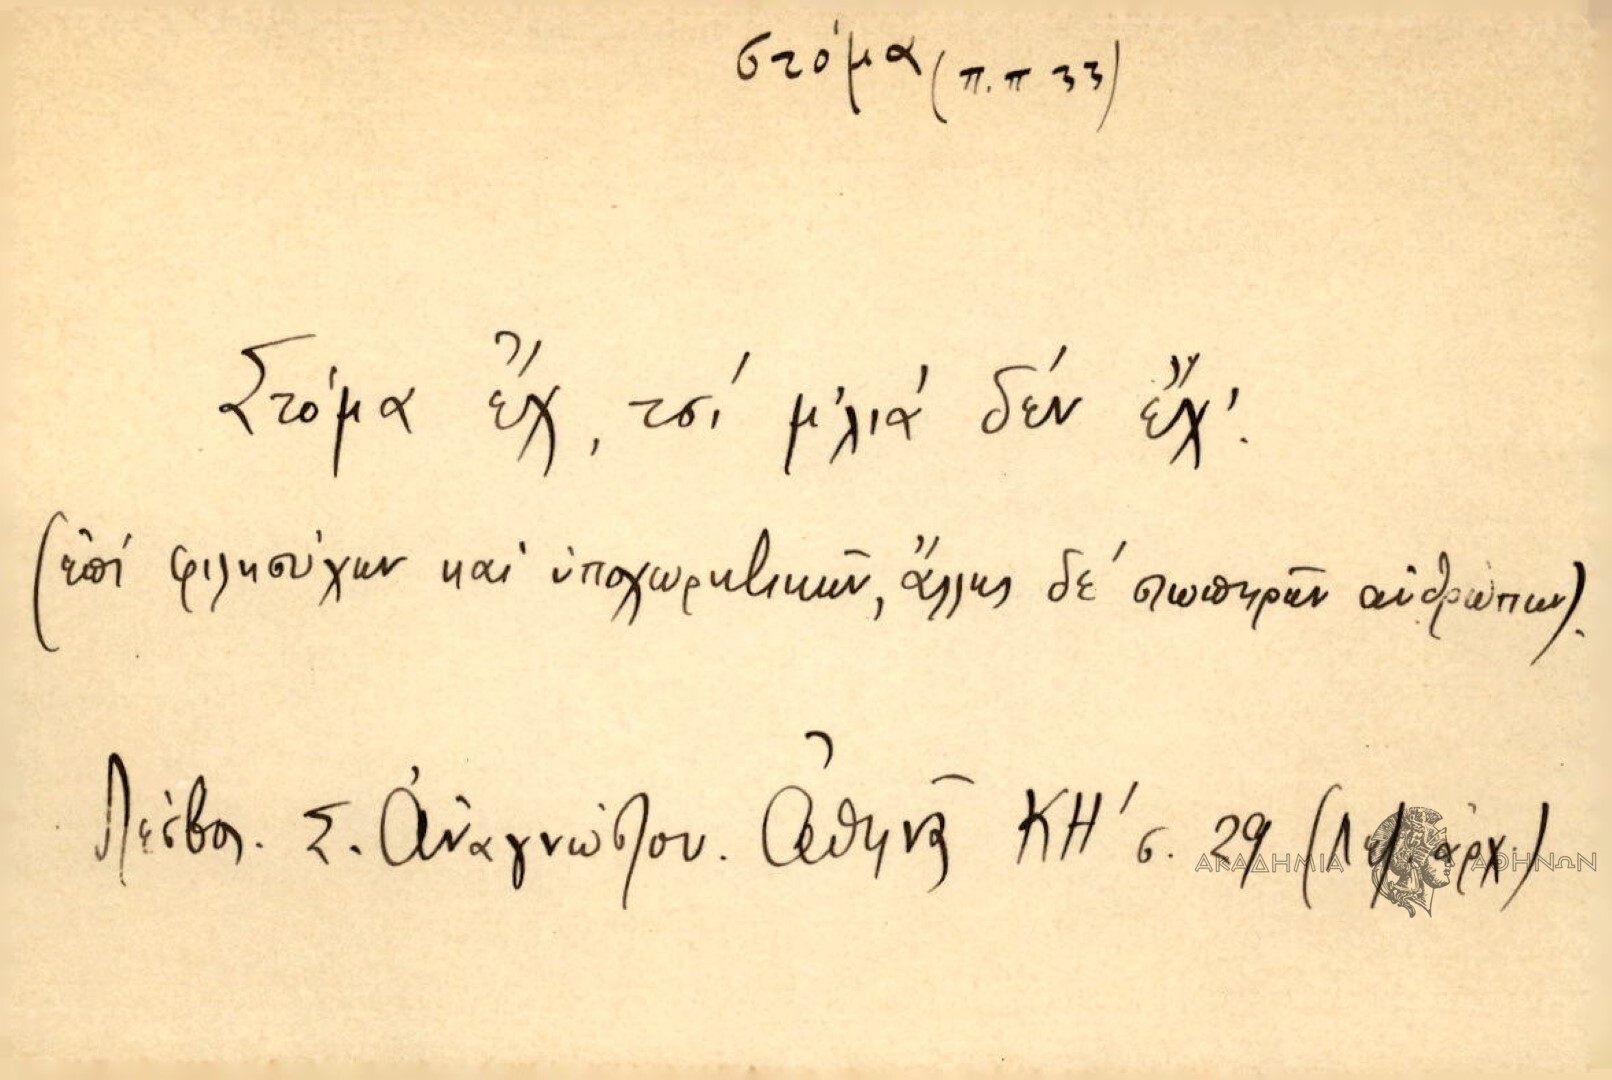 στόμα (π.π 33)
Στόμα ἔχ, τσί μ'λιά δέν ἔχ'.
(ἐπί φιλησύχων καί ὑποχωρητικῶν, ἄλλως δέ σιωπηρῶν ἀνθρώπων).
Λέσβος. Σ. Ἀναγνώστου. Ἀθηνᾶ ΚΗ' σ. 29 (Λεξ. ἀρχ.)
ΑΚΑΔΗΜΙΑ ΑΘΗΝΩΝ